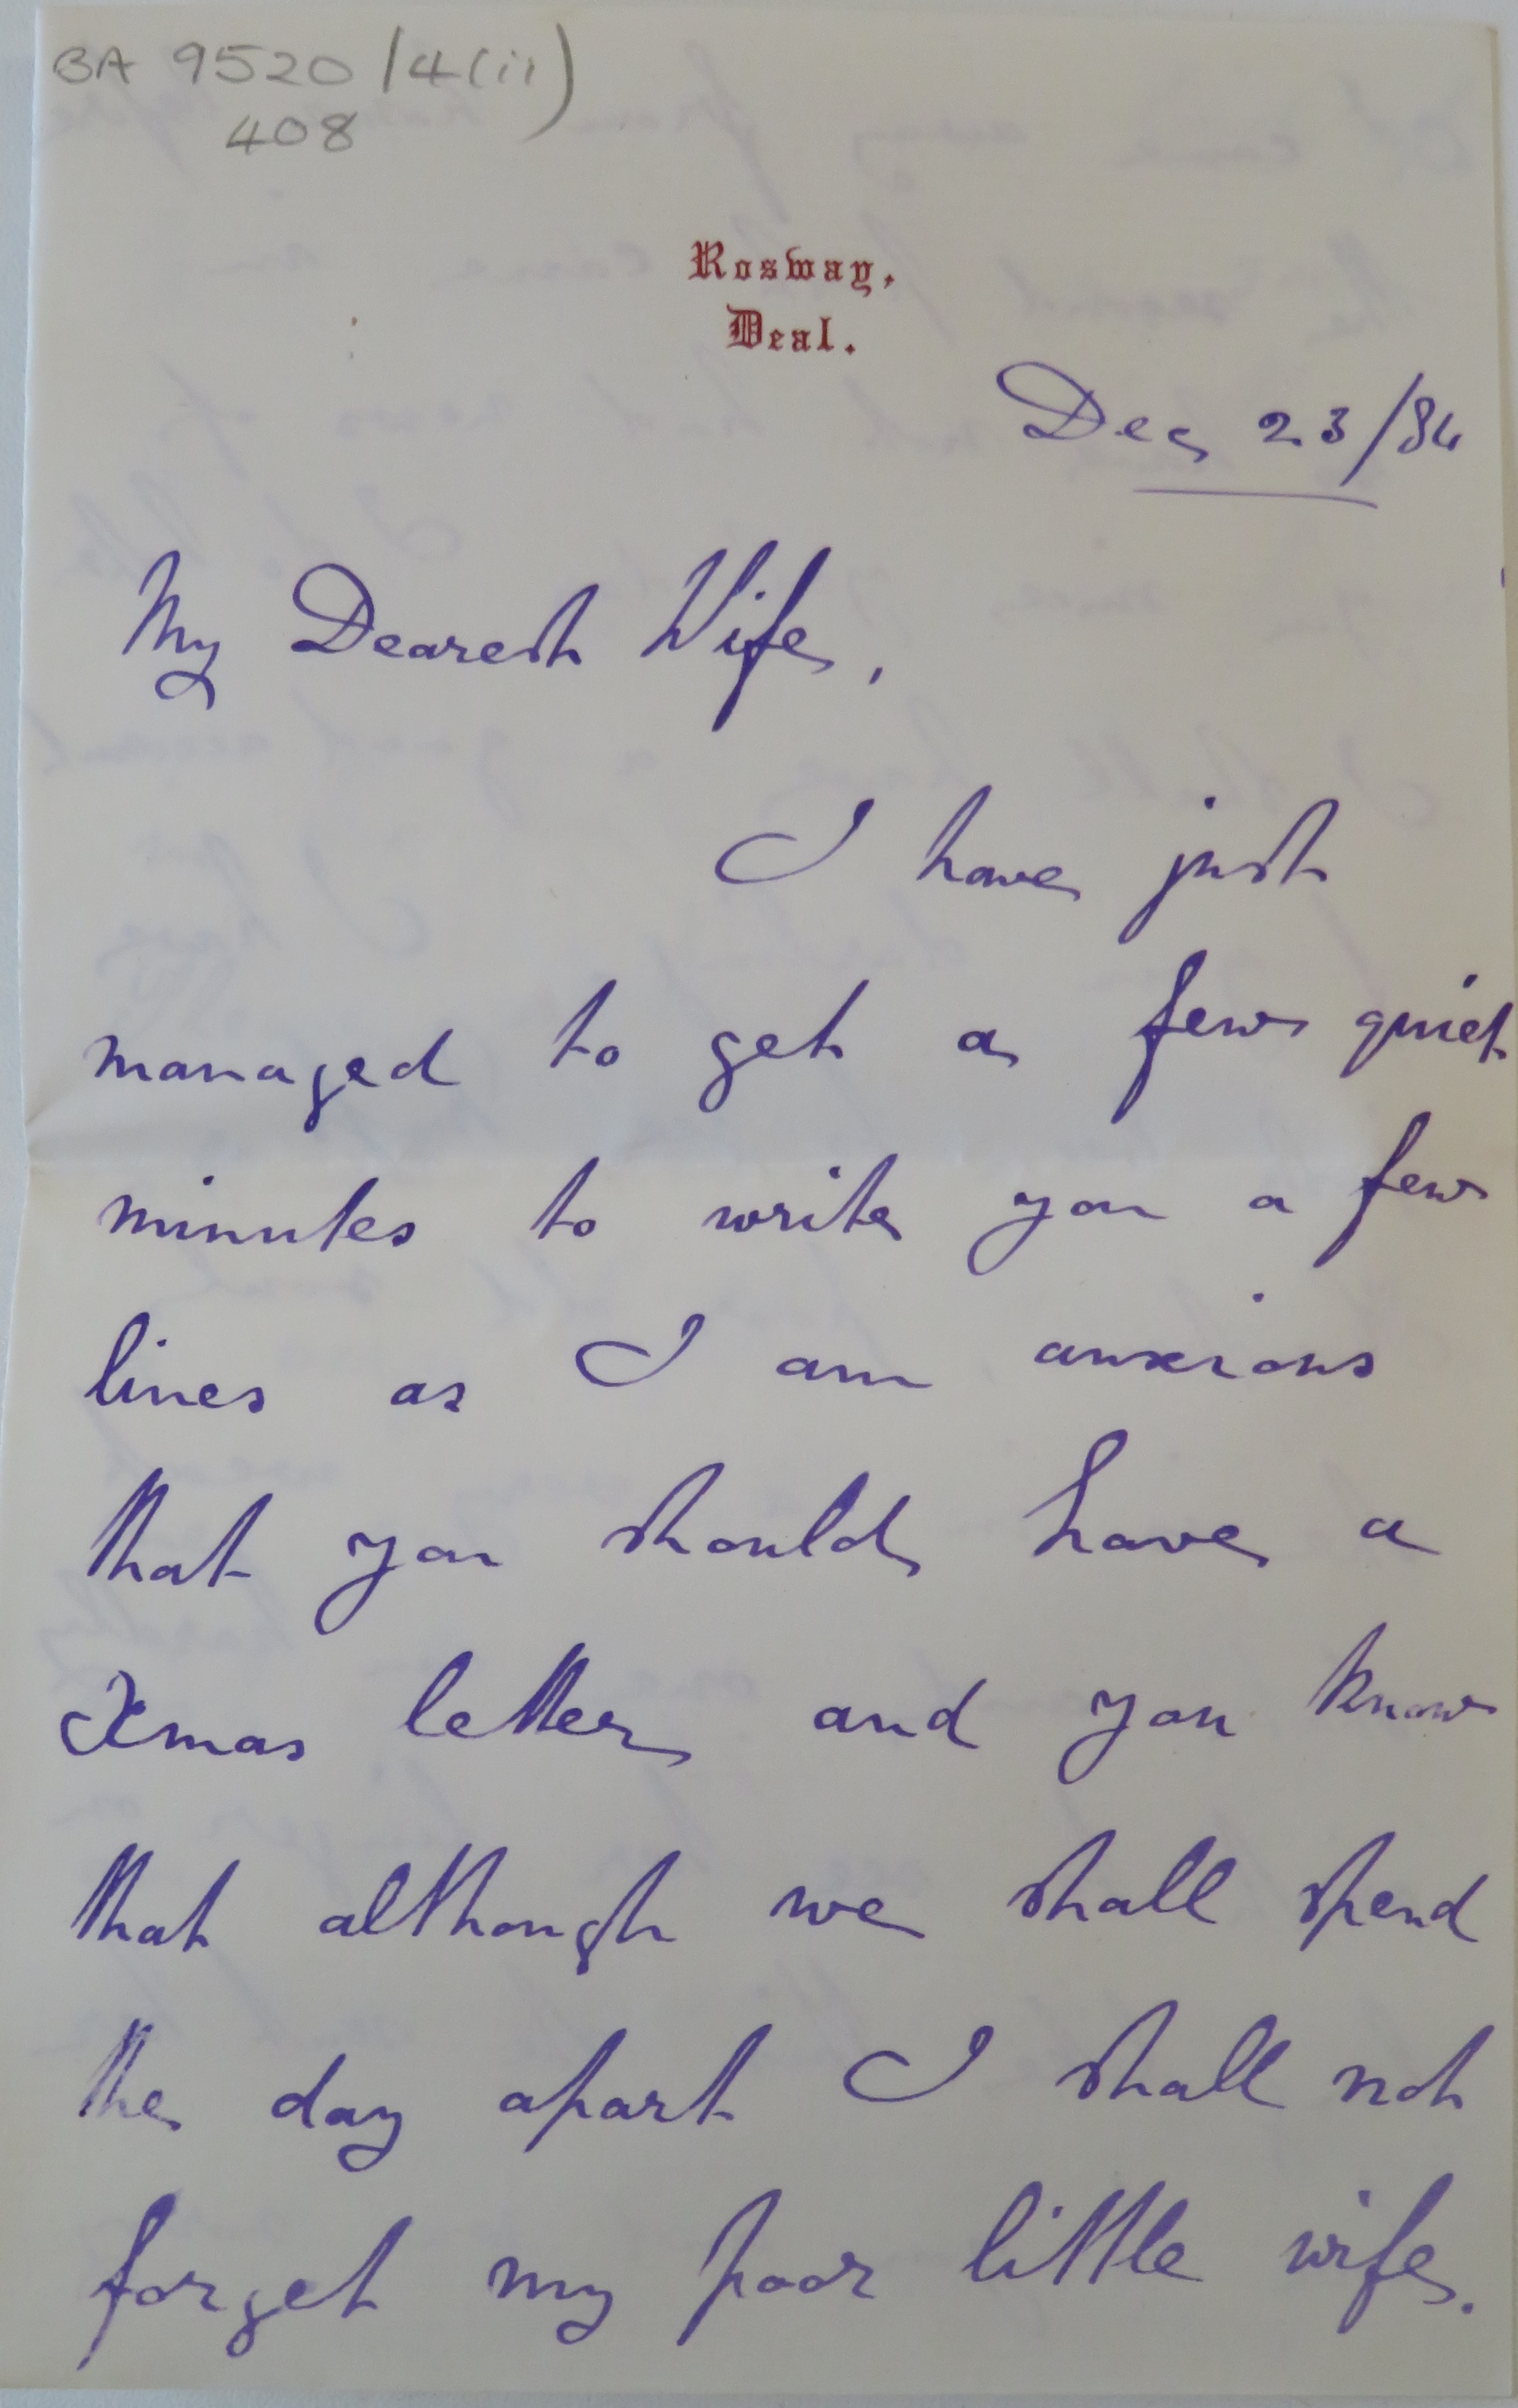 BA 9520/4(ii)
408
Rosway,
Deal.
Dec 23/84
My Dearest Wife,
I have just
managed to get a few quiet
minutes to write you a few
lines as I am anxious
that you should have a
Xmas letter and you know
that although we shall spend
the day apart I shall not
forget my poor little wife.